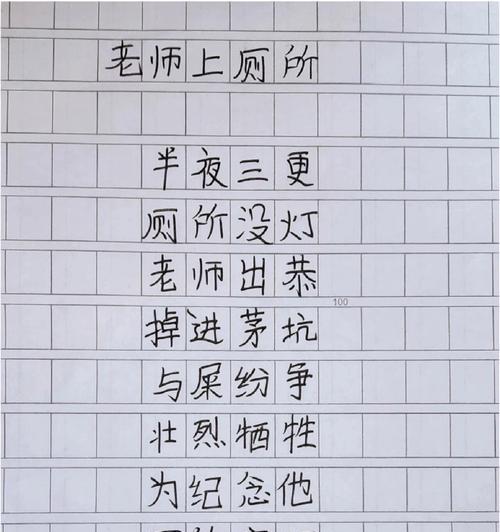 老师上厕所
半夜三更
厕所没灯
老师出恭
100
掉进茅坑
与屎纷争
壮烈牺牲
为纪念他